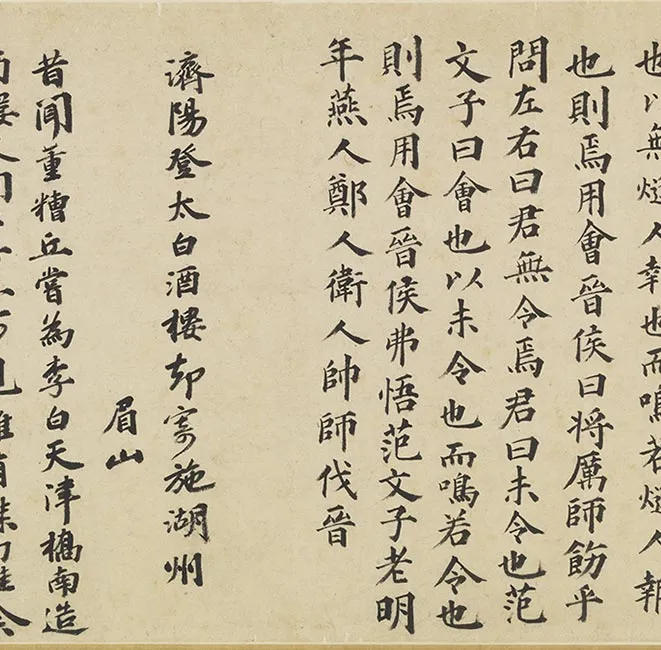 也以無燧人報也而鳴若燧人報
也則焉用會晉侯曰將厲師飭乎
問左右曰君無令焉君曰未令也范
文子曰會也以未令也而鳴若令也
則焉用會晉侯弗悟范文子老明
年燕人鄭人衛人帥師伐晉
濟陽登太白酒樓却寄施湖州
眉山
昔聞董糟丘嘗為李白天津橋南造